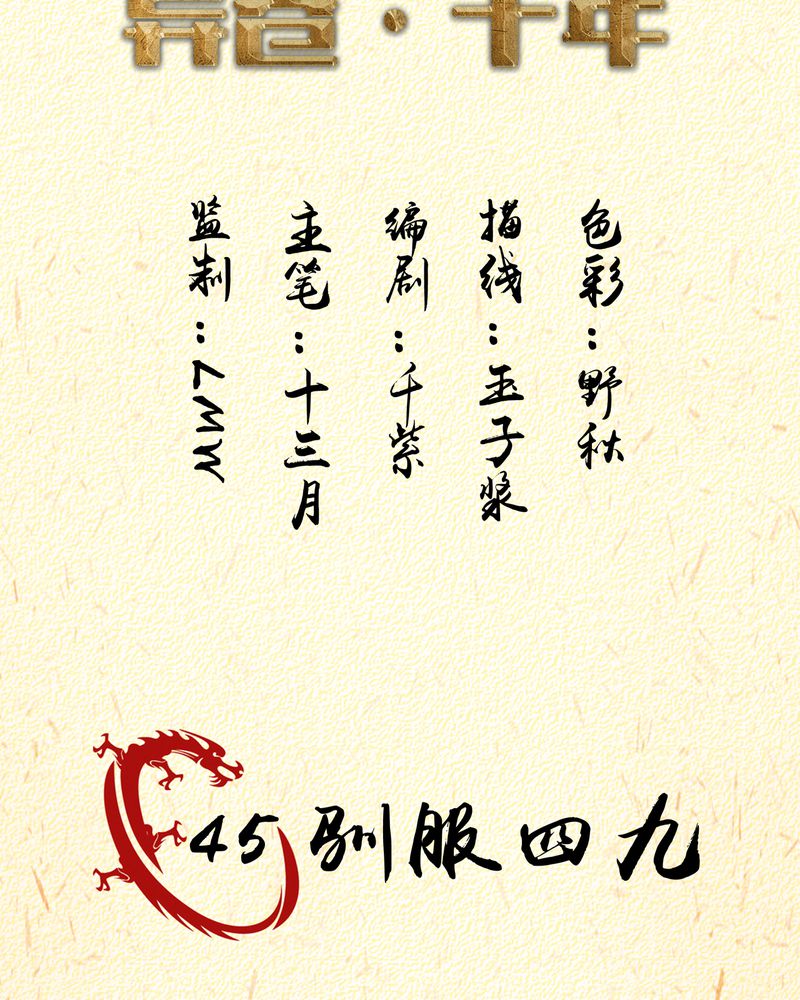 ·千年
监制：MW7
主笔：十三月
编剧：千紫
描线：玉子浆
色彩：野秋
45 驯服四九